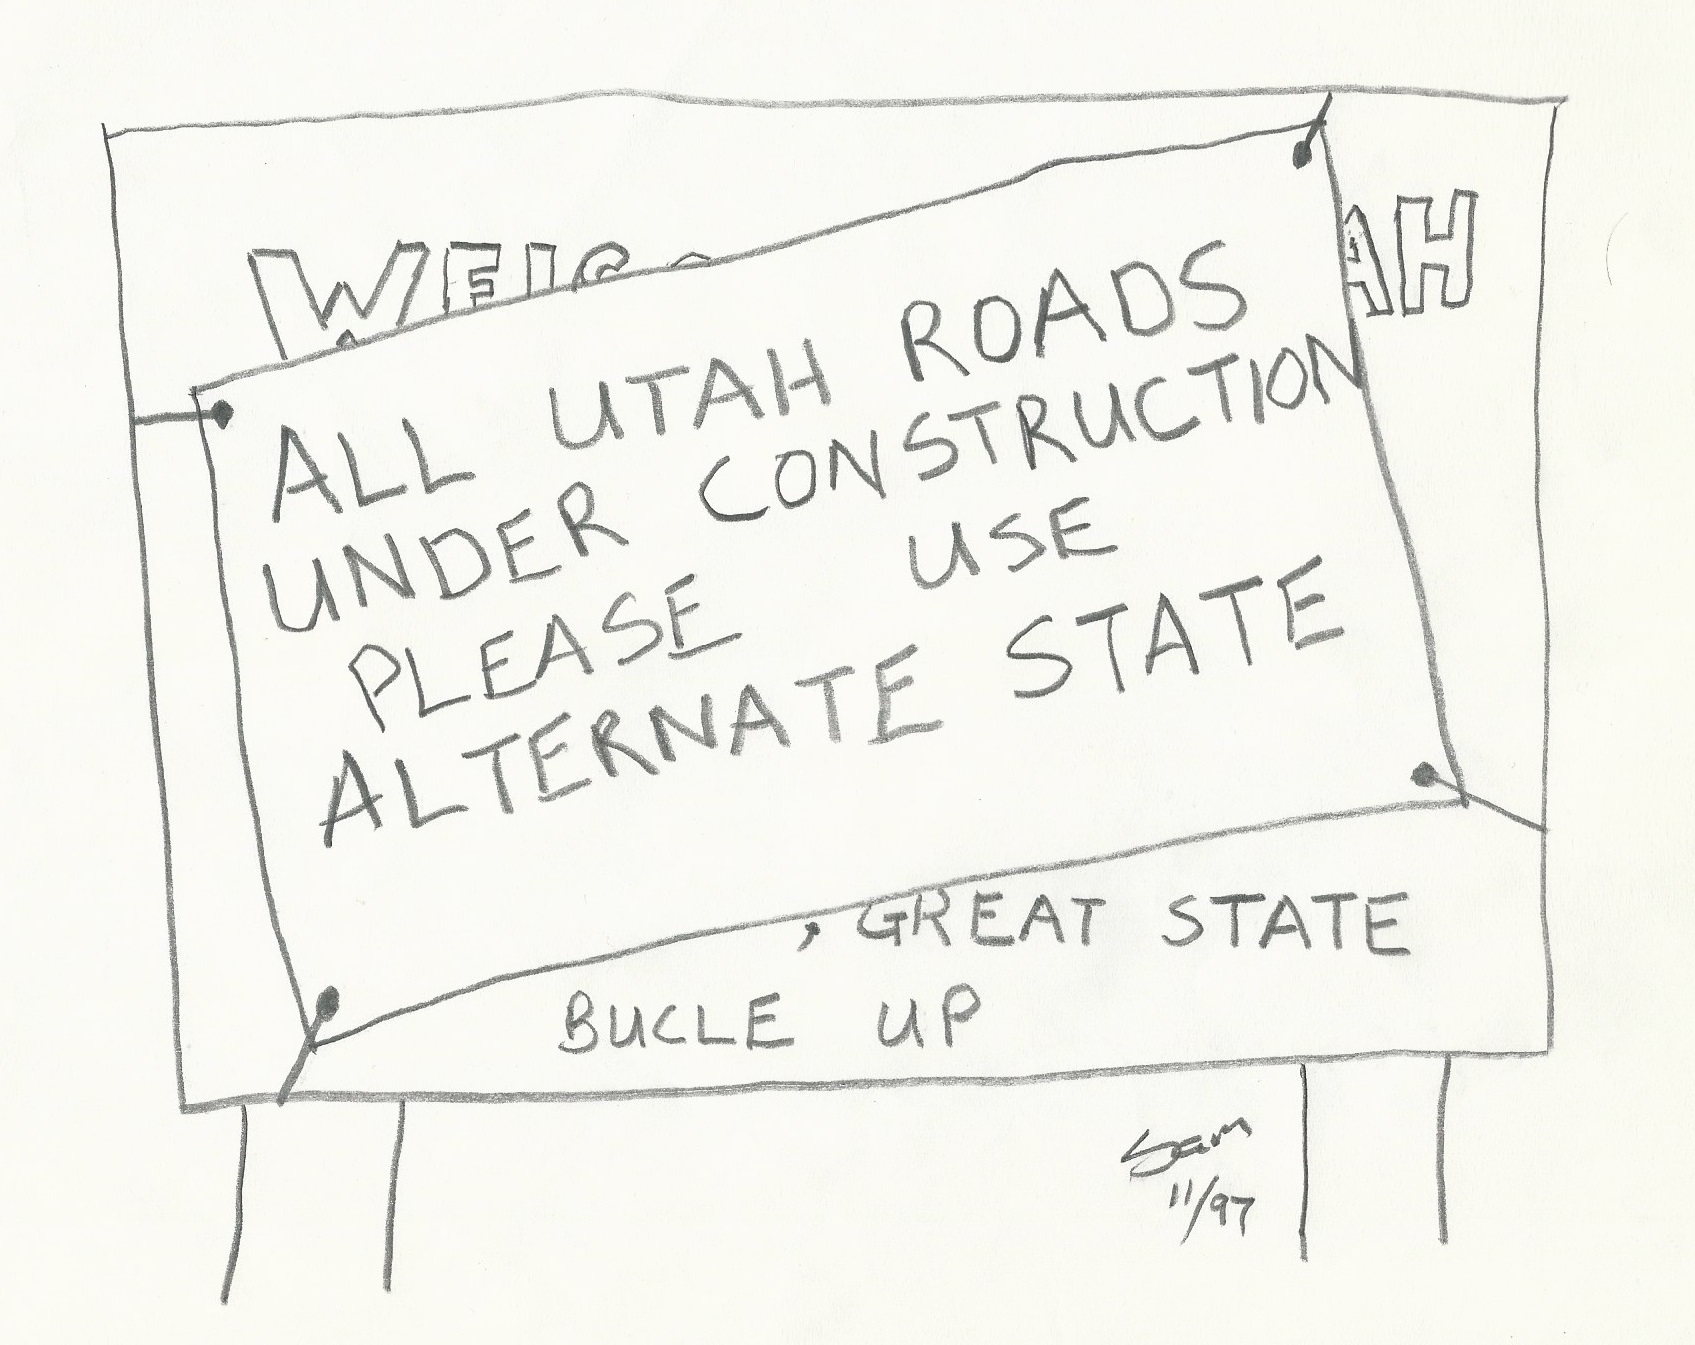 WELC AH
ALL UTAH ROADS
UNDER CONSTRUCTION
PLEASE USE
ALTERNATE STATE
, GREAT STATE
BUCLE UP
Sam
11/97